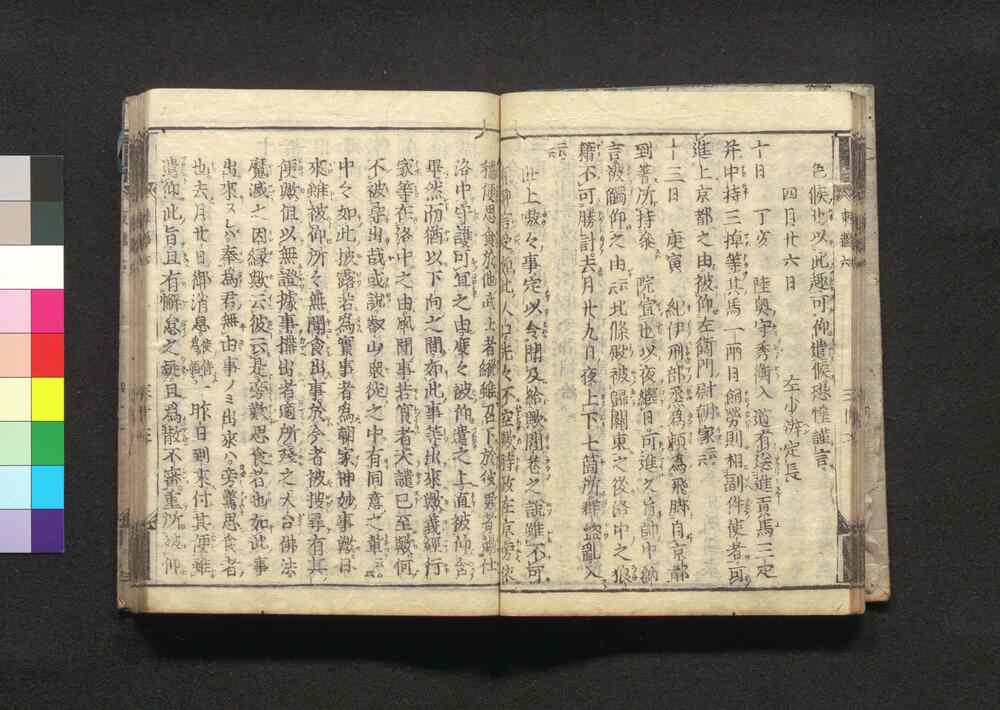 色候也以此趣可仰遣候恐惶謹言
四月廿六日　　　左少弁定長
十日　丁亥　陸奥守秀衡入道有送進貢馬三疋
并中持三棹等其馬一兩日飼労則相副件使者可
進上京都之由被仰左衛門尉朝家云云
十三日　庚寅　紀伊刑部丞為頼為飛脚自京都
到著所持参　院宣也以夜継日可進之旨帥中納
言被觸仰之由云云北條殿被歸關東之後洛中之狼
藉不可勝計去月廿九日夜上下七箇所群盗乱入
云云
世上嗷々事定以令聞及給歟閭巷之說雖不可
洛中守護可宜之由度々被仰遣之上直被仰含
畢然而猶以下向之間如此事等出來歟義經行
家等在洛中之由風聞事若實者天譴已至歟何
不被尋出哉或說叡山眾徒之中有同意之輩云云
中々如此披露若為實事者為朝家神妙事歟日
來雖被仰所々無聞食出事於今者被搜尋有其
便歟但以無證據事搆出者適所殘之天台佛法
魔滅之因緣歟云彼云是旁歎思食者也如此事
出來スレハ奉為君無由事ノミ出來ハ旁驚思食者
也去月廿日御消息昨日到來付其便雖
遣仰此旨且有懈怠之疑且為散不審重所被仰